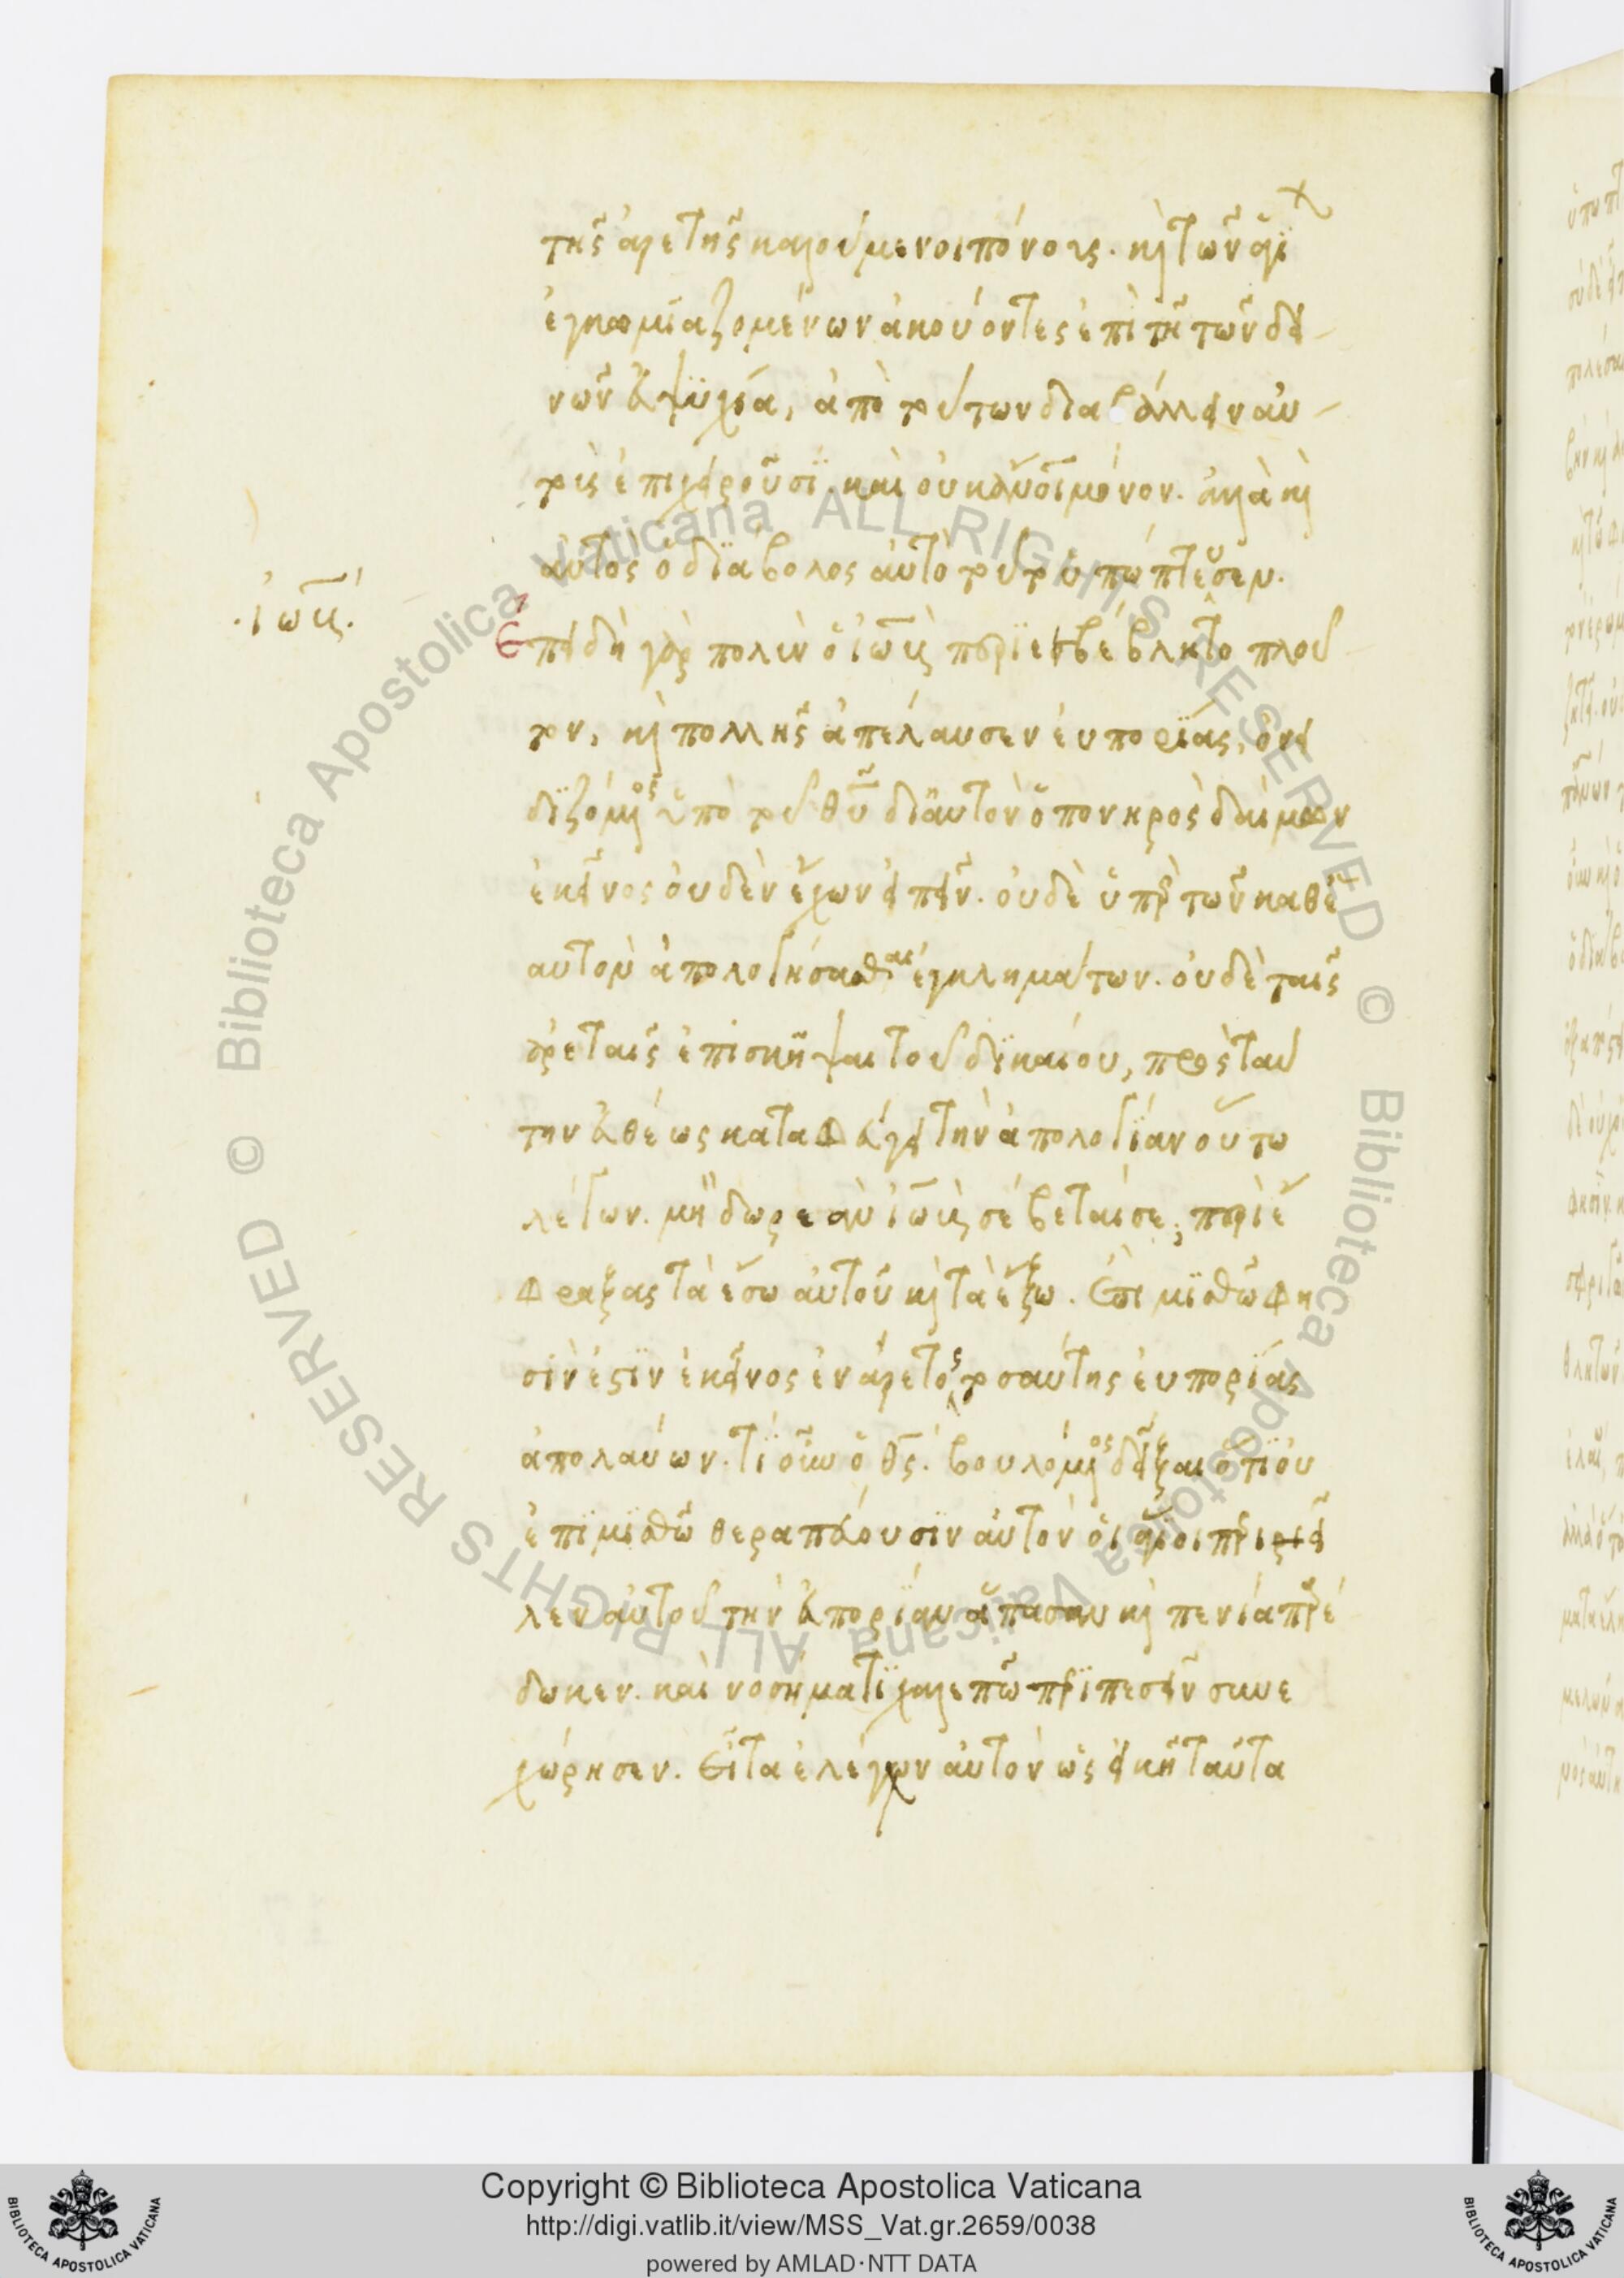 τῆς ἀρετῆς καλούμενοι πόνους. κὶ τῶν ἁγί
ἐγκωμιαζομένων ἀκούοντες ἐπὶ τῇ τῶν δει
νῶν εὐψυχία, ἀπὸ τούτων διαβάλλειν αὐ
τοὺς ἐπιχειροῦσι. καὶ οὐκ αὐτοὶ μόνον. ἀλλὰ κὶ
αὐτὸς ὁ διάβολος αὐτὸ τοῦτο ὑπώπτευσεν.
.ἰώβ.
Ἐπειδὴ γὰρ πολὺν ὁ ἰὼβ περιεβέβλητο πλοῦ
τον, κὶ πολλῆς ἀπέλαυσεν εὐπορίας, ὀνει
διζόμενος ὑπὸ τοῦ θυ δι αὐτὸν ὁ πονηρὸς δαίμων
ἐκεῖνος οὐδὲν ἔχων εἰπεῖν. οὐδὲ ὑπὲρ τῶν καθ ἑ
αυτοῦ ἀπολογήσασθαι ἐγκλημάτων. οὐδὲ ταῖς
ἀρεταῖς ἐπισκῆψαι τοῦ δικαίου, πρὸς ταύ
την εὐθέως καταφεύγει τὴν ἀπολογίαν οὕτω
λέγων. μὴ δωρεὰν ἰὼβ σέβεταί σε; περιέ
φραξας τὰ ἔσω αὐτοῦ κὶ τὰ ἔξω. Ἐπι μισθῶ φη
σὶν ἐστὶν ἐκεῖνος ἐνάρετος τοσαύτης εὐπορίας
ἀπολαύων. τί οὖν ὁ θς. βουλόμενος δεῖξαι ὅτι οὐ
ἐπὶ μισθῶ θεραπεύουσιν αὐτὸν οἱ ἅγιοι περιεῖ
λεν αὐτοῦ τὴν εὐπορίαν ἅπασαν κὶ πενία παρέ
δωκεν. καὶ νοσήματι χαλεπῶ περιπεσεῖν συνε
χώρησεν. Εἶτα ἐλέγχων αὐτὸν ὡς εἰκῆ ταῦτα
Copyright © Biblioteca Apostolica Vaticana
http://digi.vatlib.it/view/MSS_Vat.gr.2659/0038
powered by AMLAD·NTT DATA
BIBLIOTECA APOSTOLICA VATICANA
BIBLIOTECA APOSTOLICA VATICANA
© Biblioteca Apostolica Vaticana ALL RIGHTS RESERVED
© Biblioteca Apostolica Vaticana ALL RIGHTS RESERVED